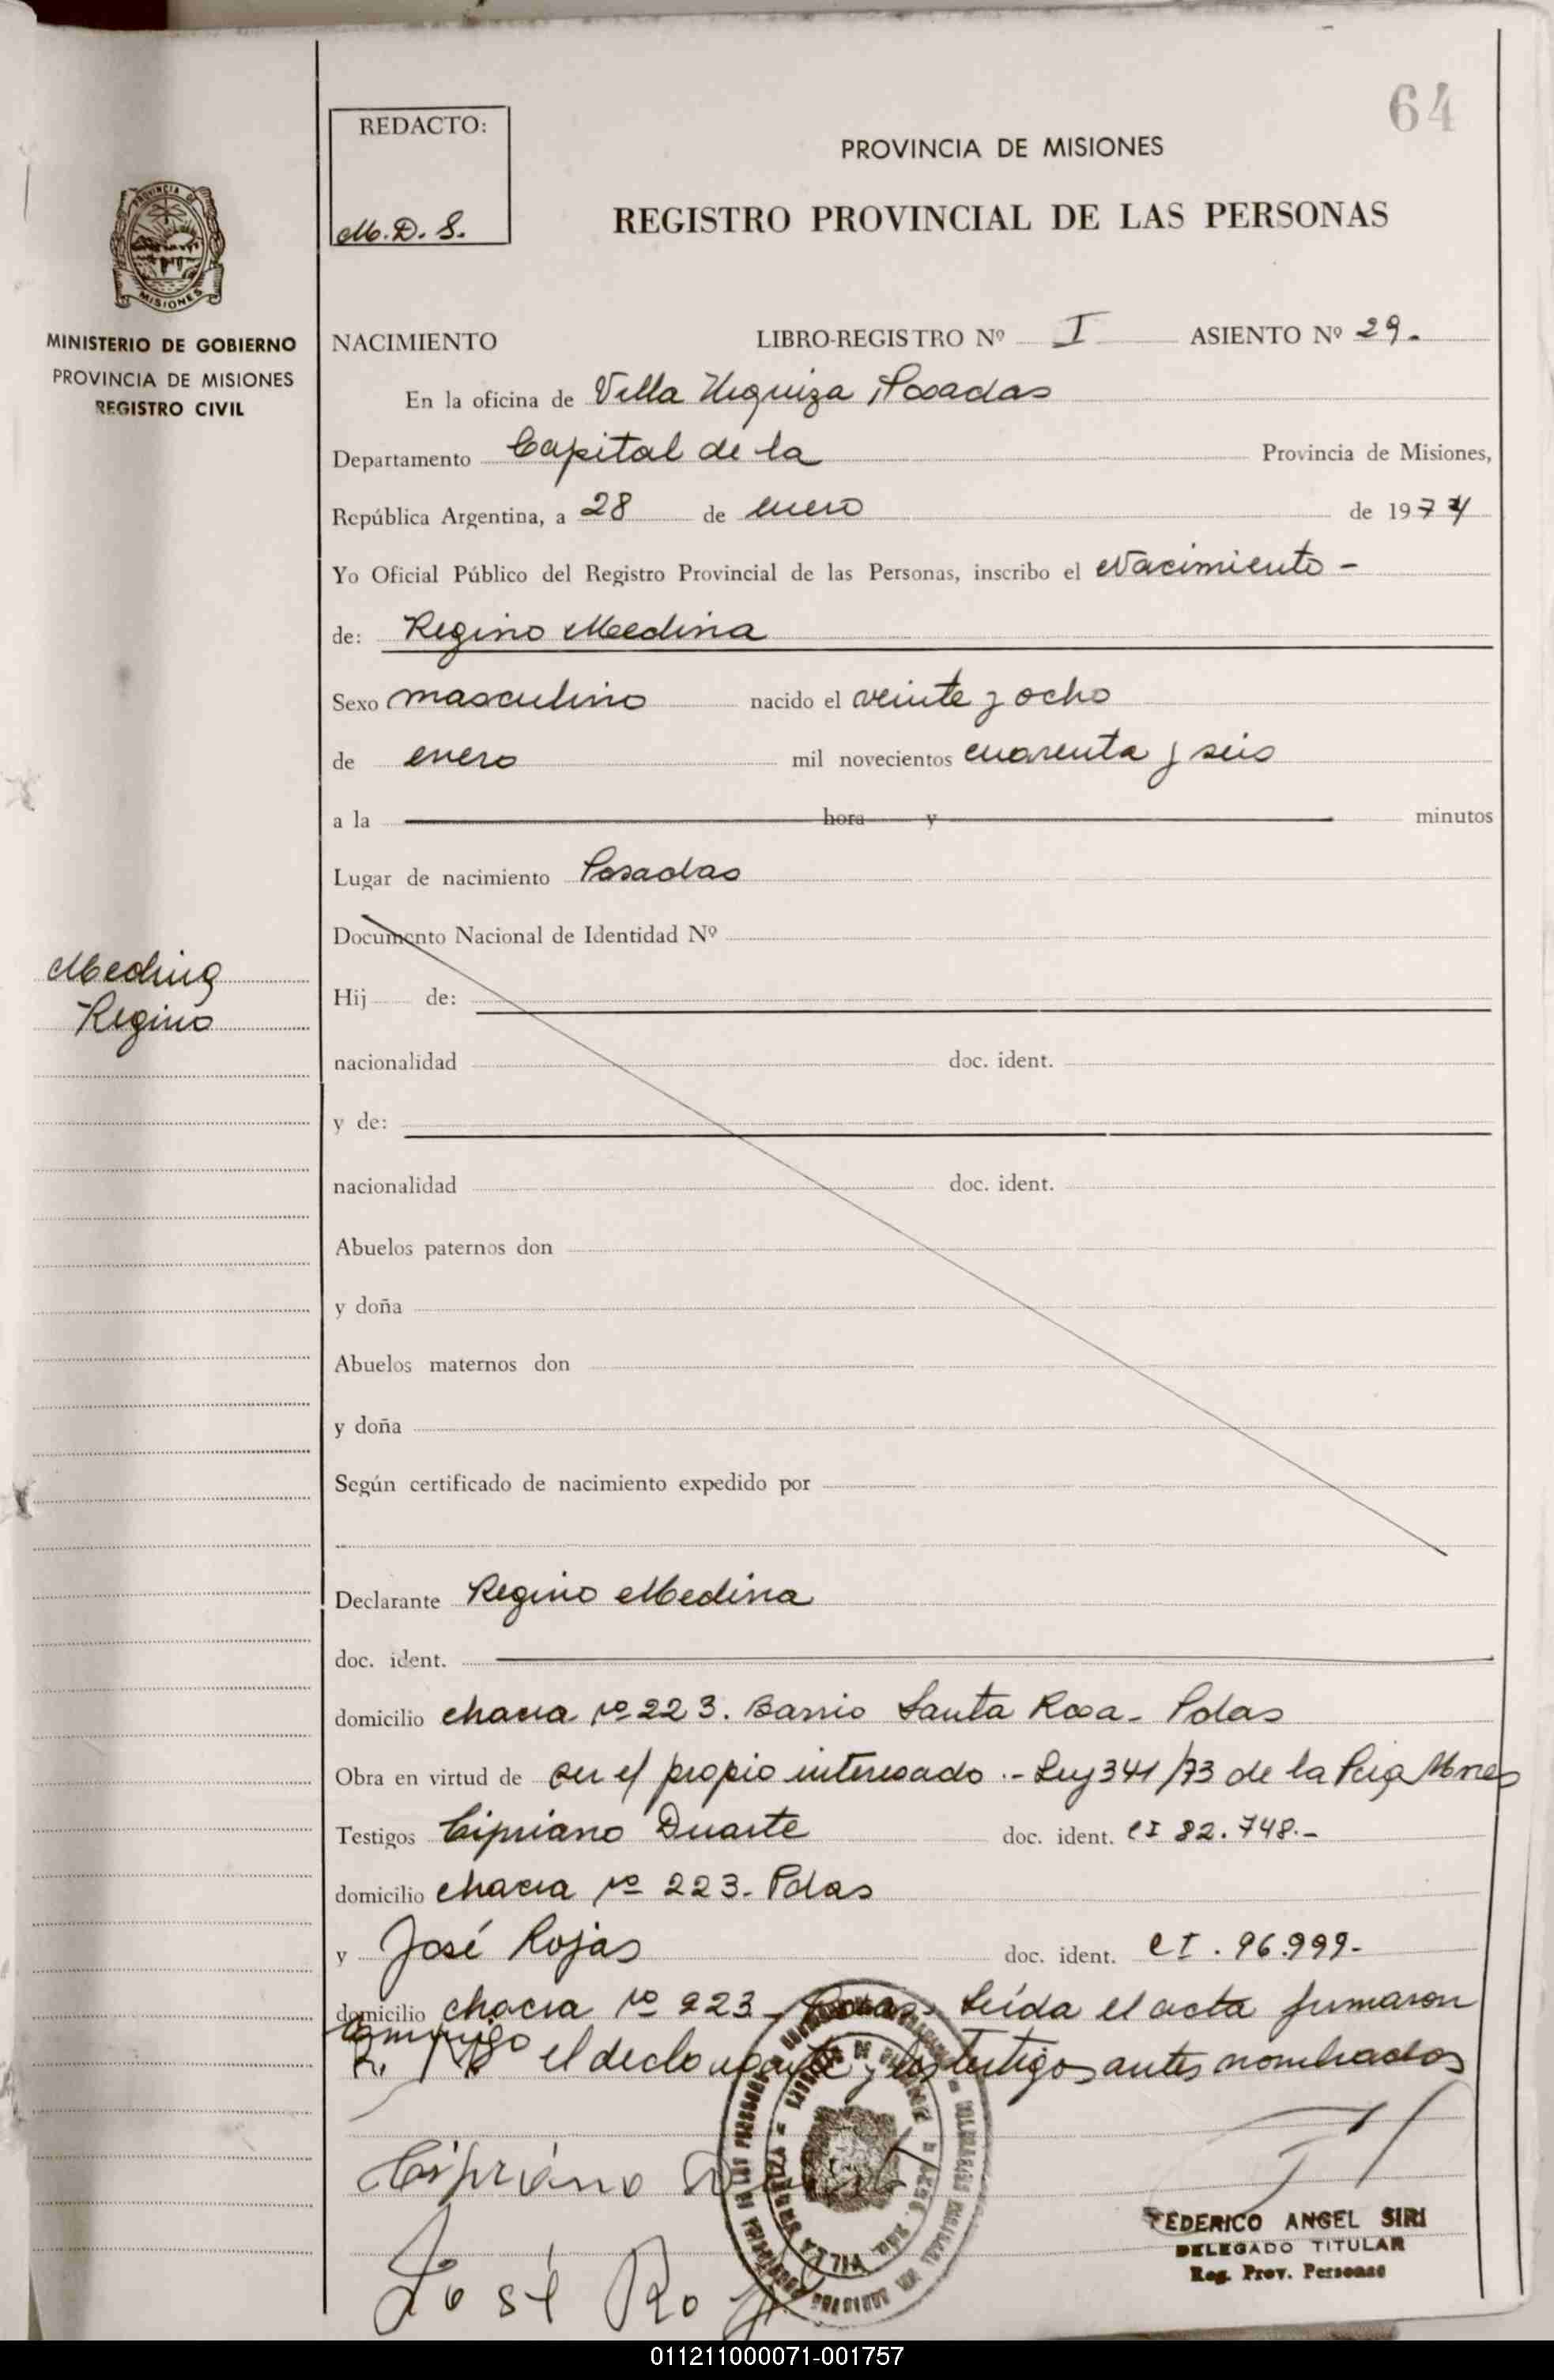 64
REDACTO:
M.D.S.
PROVINCIA DE MISIONES
REGISTRO PROVINCIAL DE LAS PERSONAS
PROVINCIA D
MISIONES
MINISTERIO DE GOBIERNO
PROVINCIA DE MISIONES
REGISTRO CIVIL
NACIMIENTO LIBRO-REGISTRO Nº I ASIENTO Nº 29.
En la oficina de Villa Urquiza, Posadas
Departamento Capital de la Provincia de Misiones,
República Argentina, a 28 de enero de 1974
Yo Oficial Público del Registro Provincial de las Personas, inscribo el Nacimiento -
de: Regino Medina
Sexo masculino nacido el veinte y ocho
de enero mil novecientos cuarenta y seis
a la hora y minutos
Lugar de nacimiento Posadas
Documento Nacional de Identidad Nº
Medina
Regino
Hij de:
nacionalidad doc. ident.
y de:
nacionalidad doc. ident.
Abuelos paternos don
y doña
Abuelos maternos don
y doña
Según certificado de nacimiento expedido por
Declarante Regino Medina
doc. ident.
domicilio chacra nº 223. Barrio Santa Rosa - Pdas
Obra en virtud de ser el propio interesado .- Ley 341/73 de la Pcia Mnes
Testigos Cipriano Duarte doc. ident. CI 82.748.-
domicilio chacra nº 223. Pdas
y José Rojas doc. ident. CI. 96.999-
domicilio chacra nº 223 - Leída el acta firmaron
conmigo el declarante y los testigos antes nombrados
Cipriano Duarte
José Roj
FEDERICO ANGEL SIRI
DELEGADO TITULAR
Reg. Prov. Personas
011211000071-001757